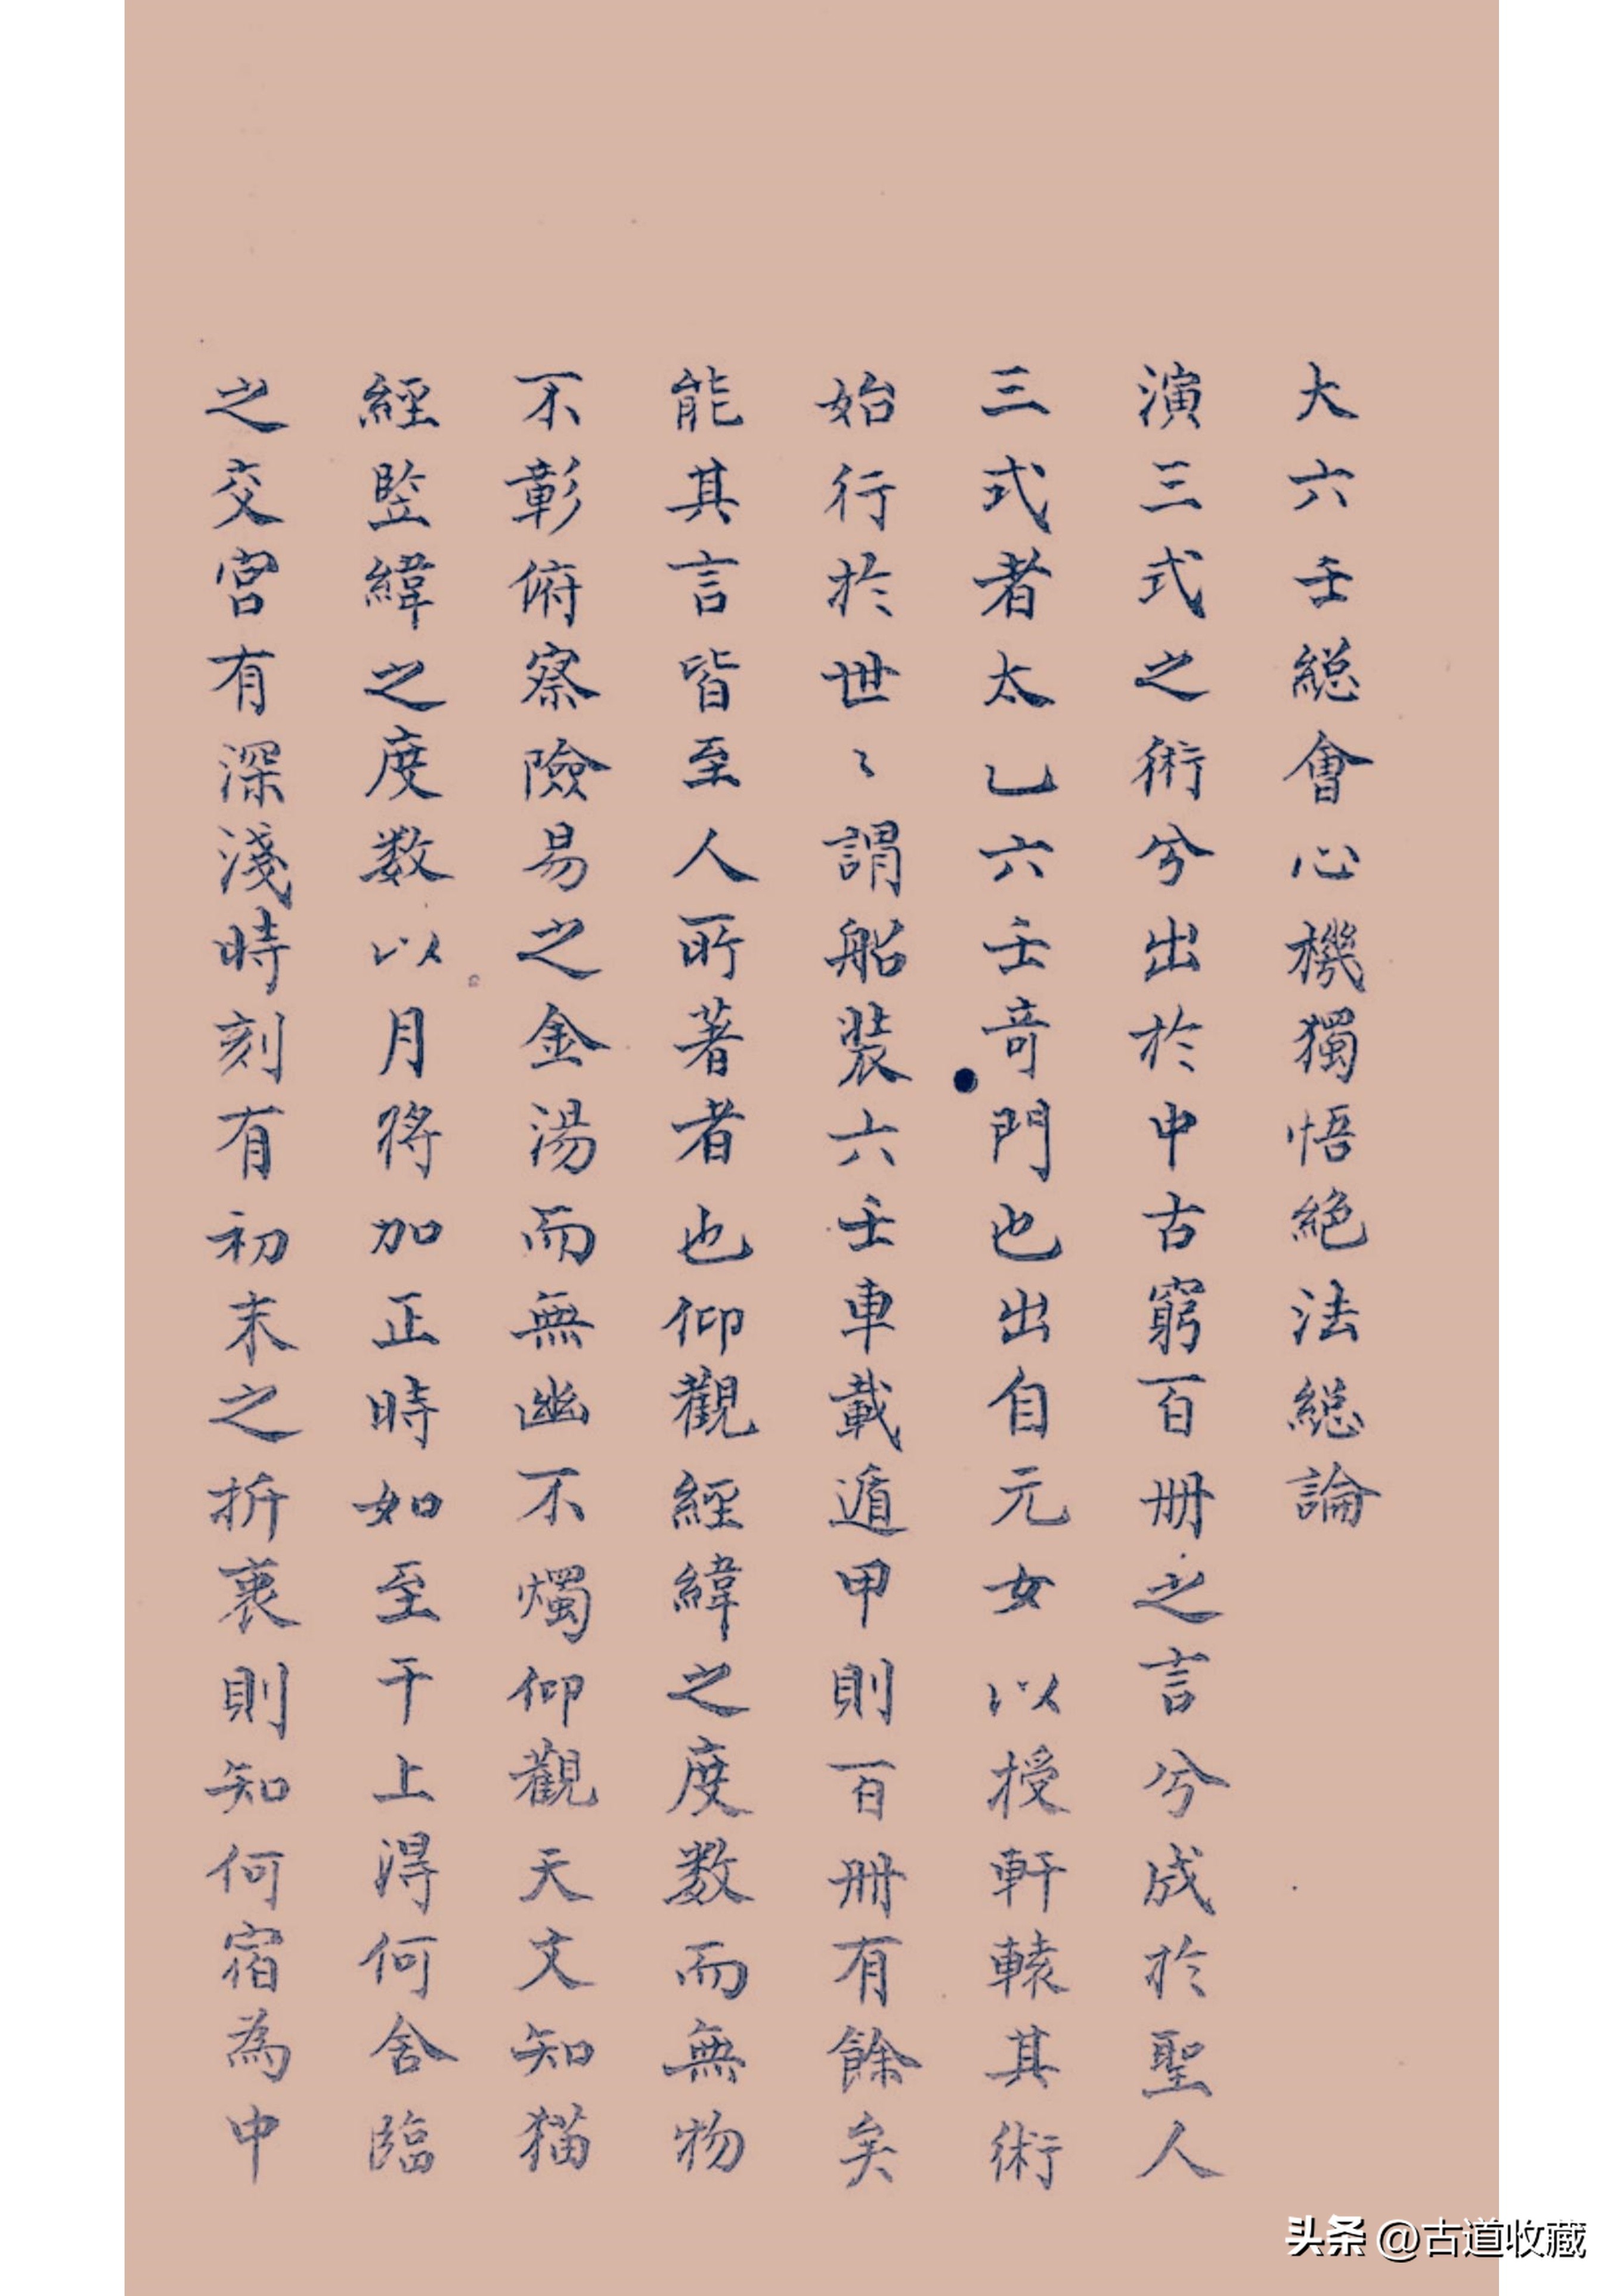 大六壬總會心機獨悟絶法總論
演三式之術兮出於中古窮百册之言兮成於聖人
三式者太乙六壬竒門也出自元女以授軒轅其術
始行於世〻謂船裝六壬車載遁甲則百册有餘矣
能其言皆至人所著者也仰觀經緯之度数而無物
不彰俯察險易之金湯而無幽不燭仰觀天文知猫
經竪緯之度数以月将加正時如至干上得何舍臨
之交宫有深淺時刻有初末之折衷則知何宿為中
头条 @古道收藏